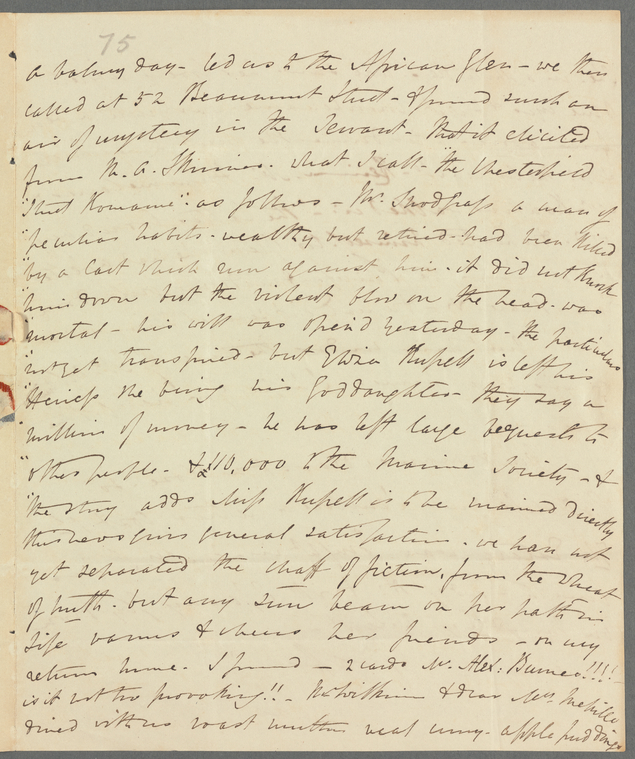 75
a balmy day - led us to the African Glen - we then
called at 52 Beaumont Street - & found such an
air of mystery in the Servant - that it elicited
from M. A. Skinner. what I call - "the Chesterfield
"Street Romance". as follows - Mr. Snodgrass a man of
"peculiar habits - wealthy but retired - had been killed
"by a Cart which run against him - it did not knock
"him down but the violent blow on the head - was
"mortal - his will was open'd yesterday - the particulars
"not yet transpired - but Eliza Russell is left his
"Heiress She being his Goddaughter - they say a
"million of money - he has left large bequests to
"other people - & a £10,000 to the Marine Society - &
"the story adds Miss Russell is to be married directly
this news gives general satisfaction. we have not
yet separated the chaff of fiction. from the wheat
of truth - but any sun beam on her path in
Life warms & cheers her friends - on my
return home. I found - 2 cards Mr. Alex: Burnes!!!!
is it not too provoking!! - & dear Mrs.
dined with us roast mutton veal curry - apple pudding